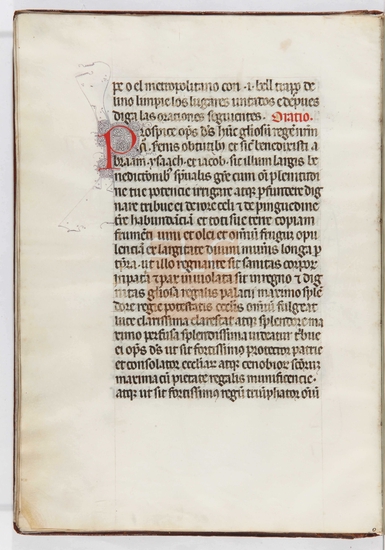 po o el metropolitano con .i. bell trapo de
lino limpie los lugares untados e depues
diga las orationes seguientes. Oratio.
Prospice op̄s d̄s hūc gl̄iosū regē n̄rm
.N̄. s̄enis obtutib; et sic̄ benedixisti a
braam. ysaach. et iacob. sic illum largis be
nedictōnib; sp̄ualis gr̄e cum om̄i plenitudi
ne tue potencie irrigare atq; ꝑfundere dig
nare tribue ei de rore celi ⁊ de pinguedine
terre habundācia et toti sue terre copiam
frumēti uini et olei et om̄iū frugū opu
lenciā et largitate diuini mun̄is longa p
tp̄ra. ut illo regnante sit sanitas corpor
in patria ⁊ pax inuiolata sit in regno ⁊ dig
nitas gl̄iosa regalis palacij maximo splē
dore regie potestatis oculis om̄iū fulgeat
luce clarissima clarescat atq; splendore ma
ximo perfusa splendissima uideatur t'bue
ei op̄s d̄s ut sit fortissimus protector patrie
et consolator eccliar̄ atq; cenobior̄ sc̄orum
maxima cū pietate regalis munificencie.
atq; ut sit fortissimus regū triūphator om̄iū